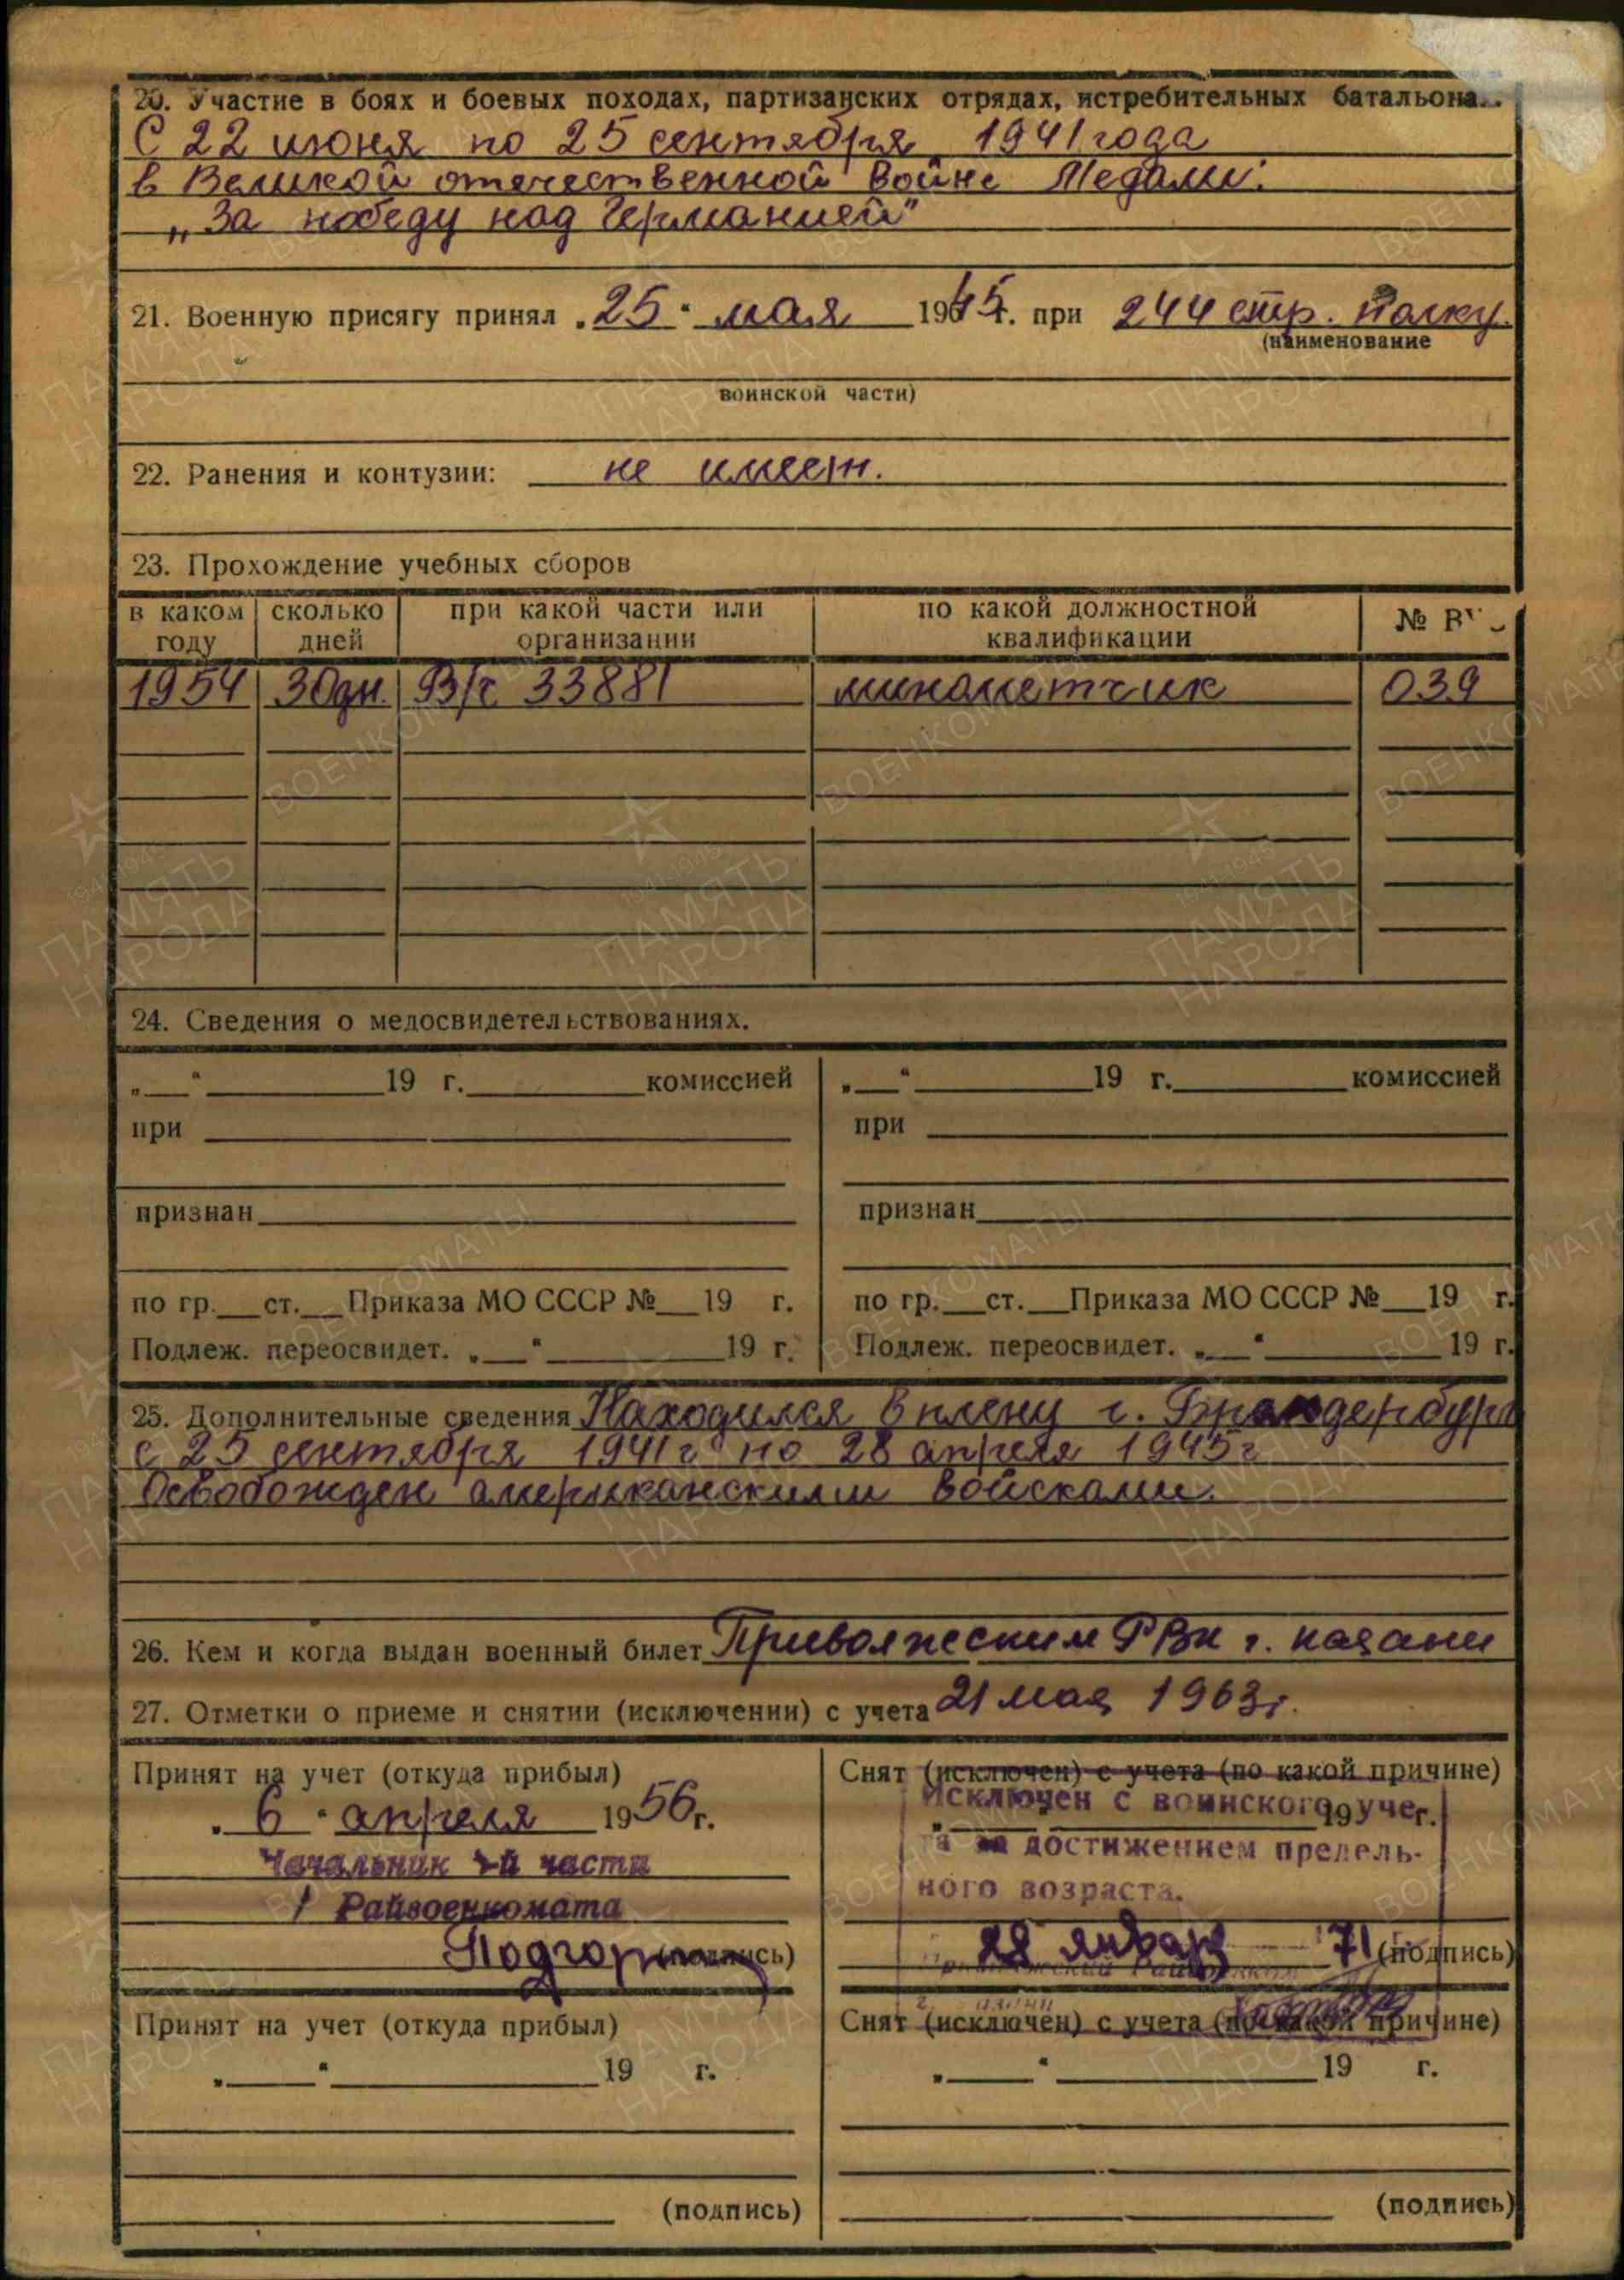 20. Участие в боях и боевых походах, партизанских отрядах, истребительных батальона
С 22 июня по 25 сентября 1941 года
в Великой отечественной войне Медали:
„За победу над Германией"
21. Военную присягу принял „25" мая 1945 г. при 244 стр. полку.
(наименование
воинской части)
22. Ранения и контузии: не имеет.
23. Прохождение учебных сборов
в каком году | сколько дней | при какой части или организации | по какой должностной квалификации | №
1954 | 30 дн. | В/ч 33881 | минометчик | 039
24. Сведения о медосвидетельствованиях.
„__" ____ 19 г. ____ комиссией | „__" ____ 19 г. ____ комиссией
при | при
признан | признан
по гр.__ст.__Приказа МО СССР №__19 г. | по гр.__ст.__Приказа МО СССР №__19 г.
Подлеж. переосвидет. „__" ____ 19 г. | Подлеж. переосвидет. „__" ____ 19 г.
25. Дополнительные сведения Находился в плену г. Брандербург
с 25 сентября 1941 г по 28 апреля 1945 г
Освобожден американскими войсками.
26. Кем и когда выдан военный билет Приволжеским РВК г. Казани
27. Отметки о приеме и снятии (исключении) с учета 21 мая 1963 г.
Принят на учет (откуда прибыл)
„6" апреля 1956 г.
Начальник части
Райвоенкомата
(подпись)
Снят (исключен) с учета (по какой причине)
Исключен с воинского уче-
19 г.
та за достижением предель-
ного возраста.
28 январ 71 (подпись)
Принят на учет (откуда прибыл)
„__" ____ 19 г.
(подпись)
Снят (исключен) с учета (по какой причине)
„__" ____ 19 г.
(подпись)
ПАМЯТЬ НАРОДА
ВОЕНКОМАТЫ